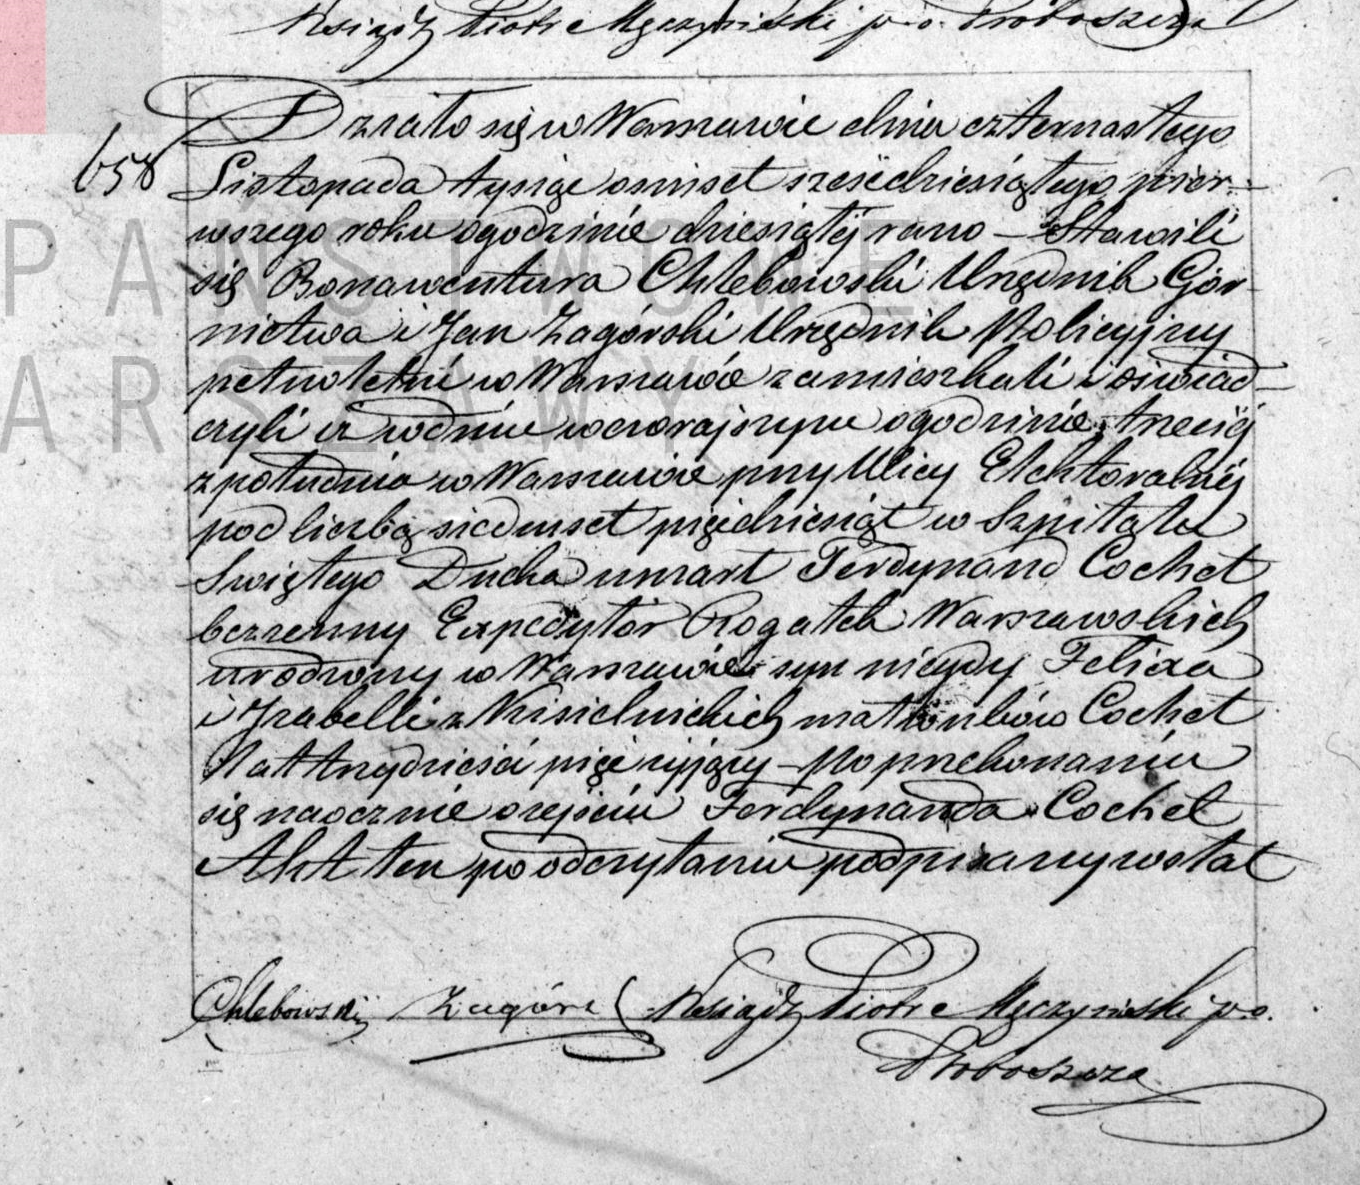 Ksiądz Piotr Męczyński p. o. Proboszcza
658
Działo się w Warszawie dnia czternastego
Listopada tysiąc osmset sześćdziesiątego pier-
wszego roku o godzinie dziesiątéj rano – Stawili
się Bonawentura Chlebowski Urzędnik Gór-
nictwa i Jan Zagórski Urzędnik Policyjny
pełnoletni w Warszawie zamieszkali i oświad-
czyli iż w dniu wczorajszym o godzinie trzeciéj
z południa w Warszawie przy Ulicy Elektoralnéj
pod liczbą siedmset pięćdziesiąt w Szpitalu
Swiętego Ducha umarł Ferdynand Cochet
bezżenny Expedytor Rogatek Warszawskich
urodzony w Warszawie syn niegdy Felixa
i Izabelli z Kisielnickich małżonków Cochet
lat trzydzieści pięć żyjący – Po przekonaniu
się naocznie o zejściu Ferdynanda Cochet
Akt ten po odczytaniu podpisany został
Chlebowski Zagórs Ksiądz Piotr Męczyński p. o.
Proboszcza
PAŃSTWOWE
ARSZAWY